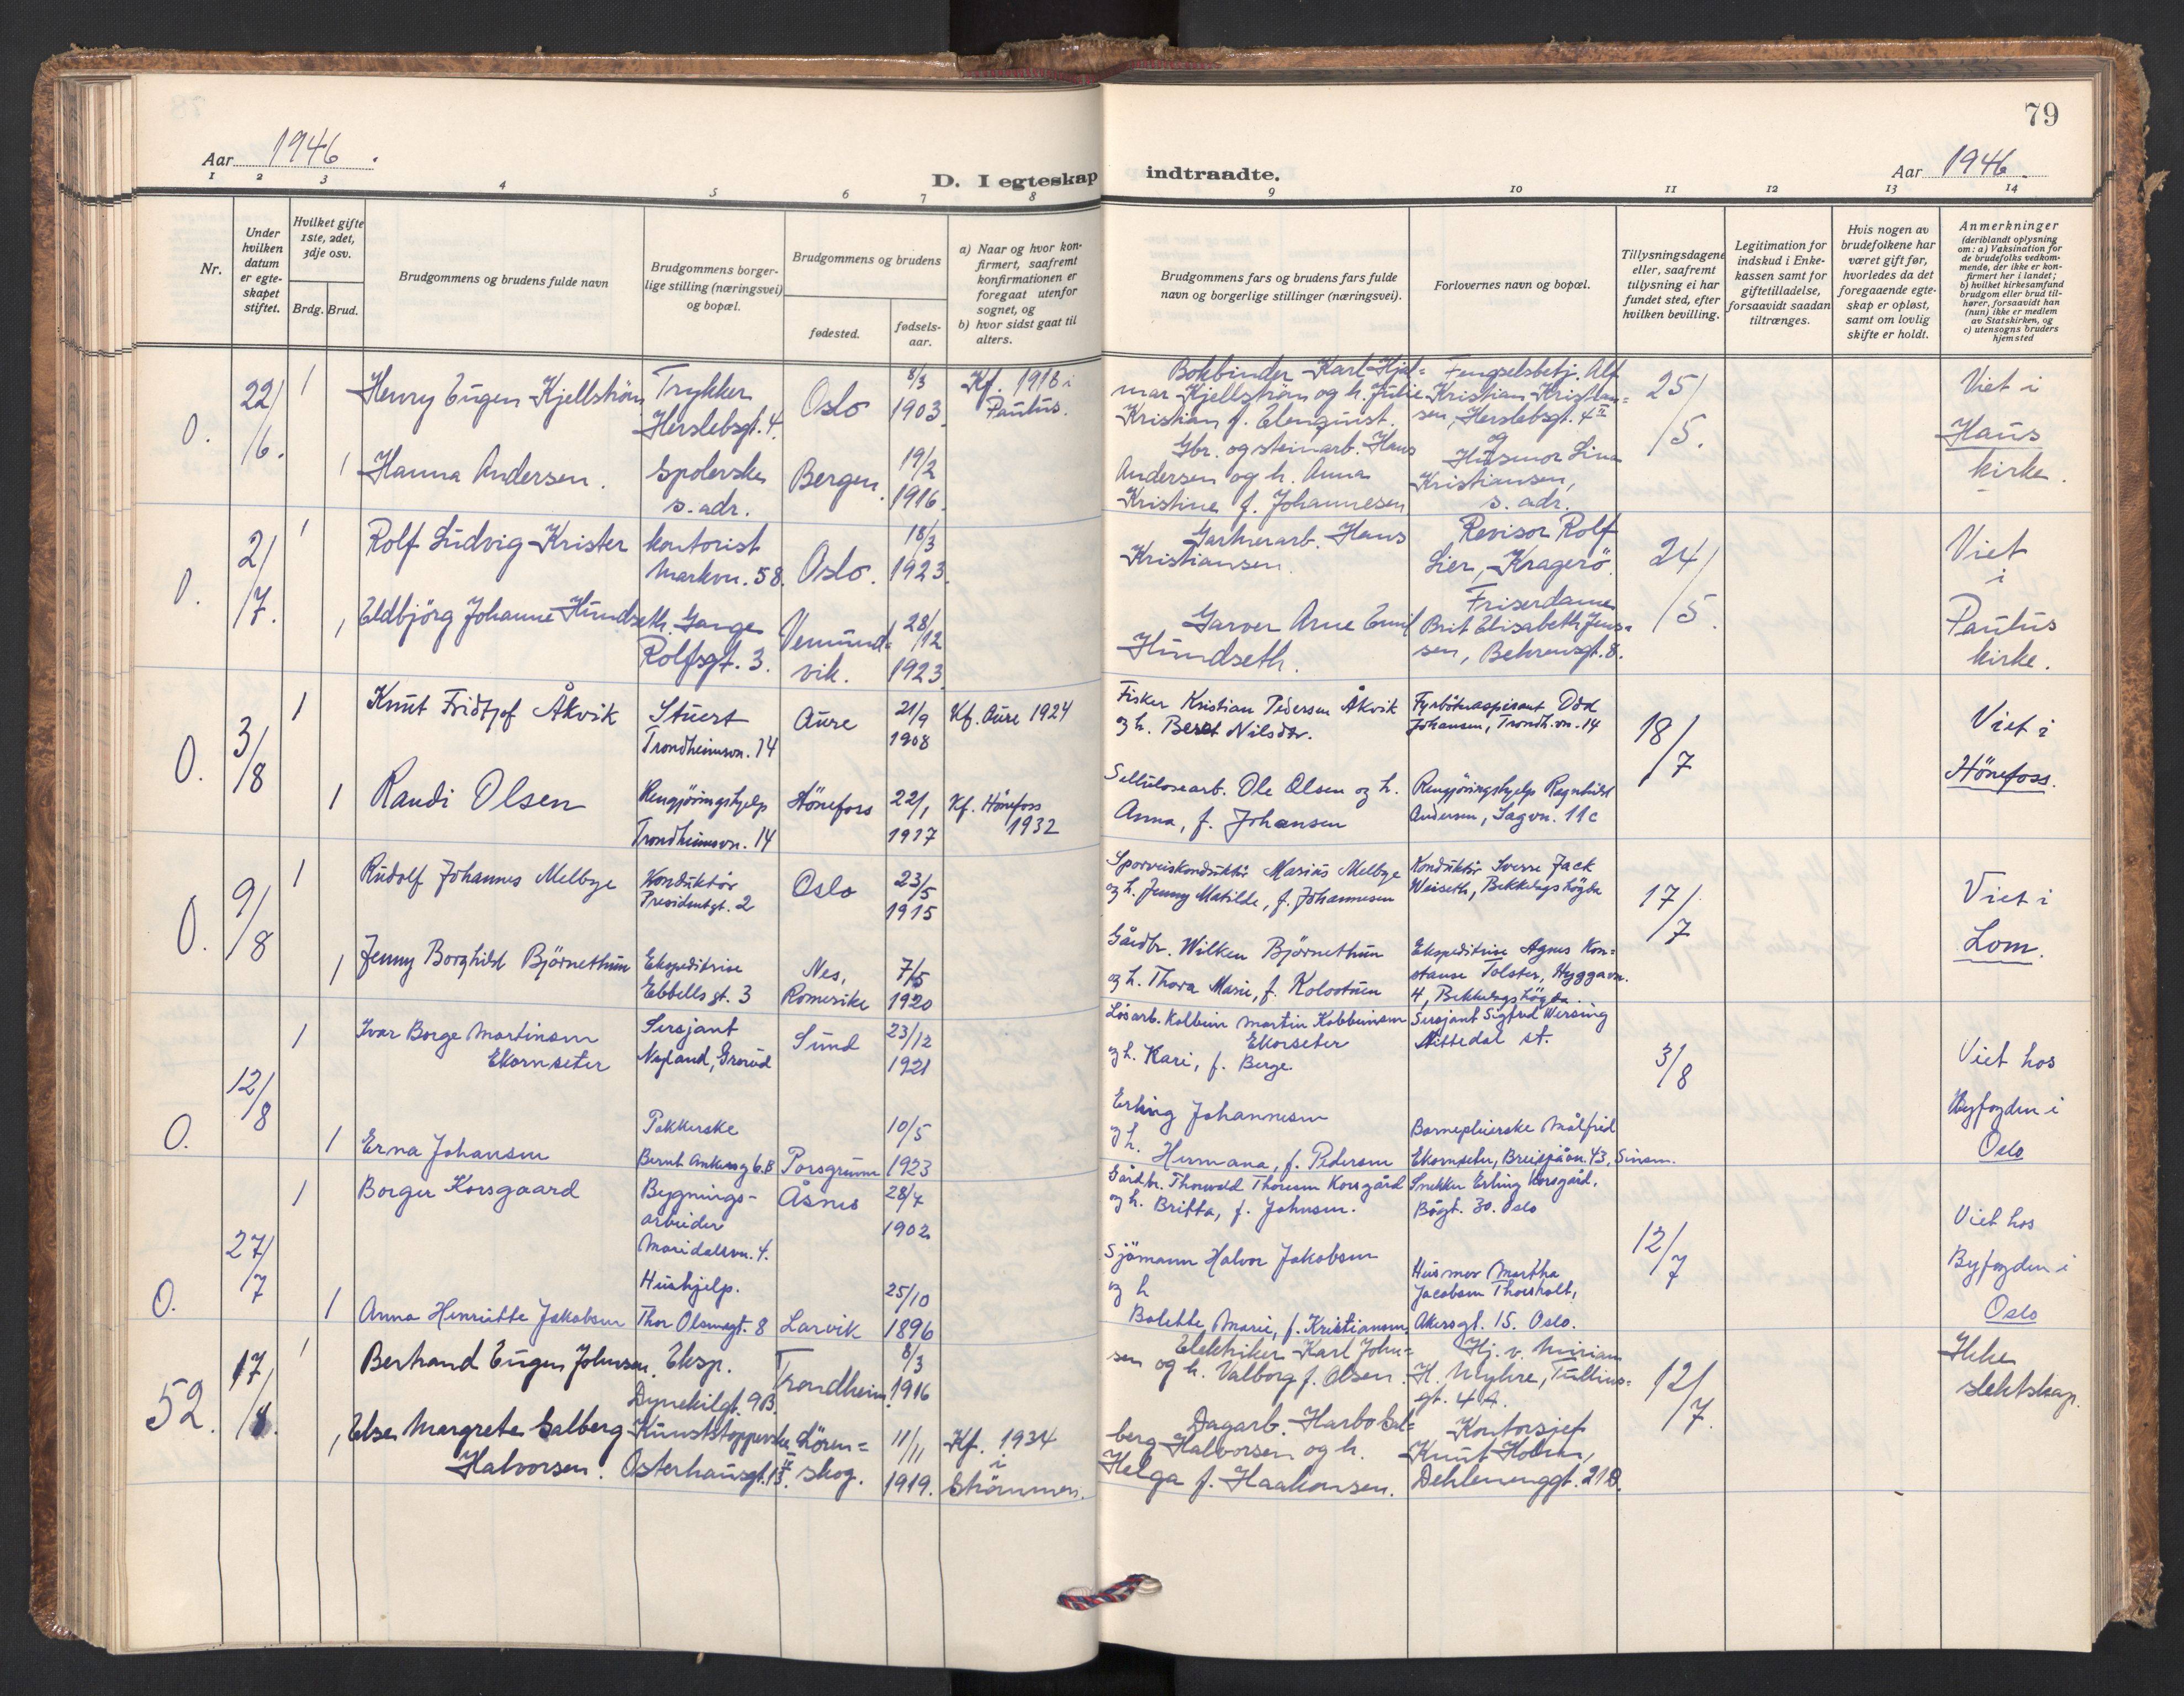 79
Aar 1946.
D. I egteskap indtraadte.
Aar 1946.
1 2 3 4 5 6 7 8 9 10 11 12 13 14
Nr.
Under hvilken datum er egteskapet stiftet.
Hvilket gifte 1ste, 2det, 3dje osv.
Brdg. Brud.
Brudgommens og brudens fulde navn
Brudgommens borgerlige stilling (næringsvei) og bopæl.
Brudgommens og brudens
fødested.
fødselsaar.
a) Naar og hvor konfirmert, saafremt konfirmationen er foregaat utenfor sognet, og
b) hvor sidst gaat til alters.
Brudgommens fars og brudens fars fulde navn og borgerlige stillinger (næringsvei).
Forlovernes navn og bopæl.
Tillysningsdagene eller, saafremt tillysning ei har fundet sted, efter hvilken bevilling.
Legitimation for indskud i Enkekassen samt for giftetilladelse, forsaavidt saadan tiltrænges.
Hvis nogen av brudefolkene har været gift før, hvorledes da det foregaaende egteskap er opløst, samt om lovlig skifte er holdt.
Anmerkninger
(deriblandt oplysning om: a) Vaksination for de brudefolks vedkommende, der ikke er konfirmert her i landet;
b) hvilket kirkesamfund brudgom eller brud tilhører, forsaavidt han (hun) ikke er medlem av Statskirken, og
c) utensogns bruders hjemsted
0. 22/6. 1 Henry Eugen Kjellström
Trykker
Herslebsgt. 4.
Oslo
8/3 1903.
Kf. 1918 i
Paulus.
Bokbinder Karl Hjal=
mar Kjellström og h. Julie
Kristian f. Elenquist.
Fengselsbetj. Alf
Kristian Kristian=
sen, Herslebsgt. 4 II
og
25/5.
Viet i
Haus
kirke.
1 Hanna Andersen.
Spolerske
s. adr.
Bergen.
19/2 1916.
Gbr. og steinarb. Hans
Andersen og h. Anna
Kristine f. Johannesen
Husmor Lina
Kristiansen,
s. adr.
0. 2/7. 1 Rolf Ludvig Krister
kontorist
Markvn. 58.
Oslo.
18/3 1923.
Gartnerarb. Hans
Kristiansen.
Revisor Rolf
Lier, Kragerö.
24/5.
Viet
i
Paulus
kirke.
1 Eldbjörg Johanne Hundseth.
Gange
Rolfsgt. 3.
Vemund=
vik.
28/12 1923.
Garver Arne Emil
Hundseth.
Friserdame
Brit Elisabeth Jens=
sen, Behrensgt. 8.
0. 3/8 1 Knut Fridtjof Åkvik
Stuert
Trondheimsvn. 14
Aure
21/9 1908
Kf. Aure 1924
Fisker Kristian Pedersen Åkvik
og h. Beret Nilsdtr.
Fyrböteraspirant Odd
Johansen, Trondh.vn. 14
18/7
Viet i
Hönefoss.
1 Randi Olsen
Rengjöringshjelp
Trondheimsvn. 14
Hönefoss
22/1 1917
Kf. Hönefoss
1932
Sellulosearb. Ole Olsen og h.
Anna, f. Johansen
Rengjöringshjelp Ragnhild
Andersen, Sagvn. 11c
0. 9/8 1 Rudolf Johannes Melbye
Konduktör
Presidentgt. 2
Oslo
23/5 1915
Sporveiskonduktör Marius Melbye
og h. Jenny Matilde, f. Johannesen
Konduktör Sverre Jack
Weiseth, Bekkelagshögda
17/7
Viet i
Lom.
1 Jenny Borghild Björnethun
Ekspeditrise
Ebbells gt. 3
Nes,
Romerike
7/5 1920
Gårdbr. Wilken Björnethun
og h. Thora Marie, f. Kolostuen
Ekspeditrise Agnes Kon=
stanse Tolster, Hyggavn.
4, Bekkelagshögda.
0. 12/8 1 Ivar Borge Martinsen
Ekornseter
Sersjant
Nyland, Grorud
Sund
23/12 1921
Lösarb. Kolbein Martin Kolbeinsen
Ekorseter
og h. Kari, f. Berge
Sersjant Sigfred Wersing
Nittedal st.
3/8
Viet hos
Byfogden i
Oslo
1 Erna Johansen
Pakkerske
Bernt Ankersg 6.B
Porsgrunn
10/5 1923
Erling Johannesen
og h.
Hermana, f. Pedersen
Barnepleierske Målfrid
Ekornseter, Breisjåvn. 43, Sinsen.
0. 27/7 1 Borger Korsgaard
Bygnings-
arbeider
Maridalsvn. 4.
Åsnes
28/7 1902
Gårdbr. Thorvald Thoresen Korsgård
og h. Britta, f. Johnsen.
Snekker Erling Korsgård,
Bögt. 30. Oslo
12/7
Viet hos
Byfogden i
Oslo
1 Anna Henriette Jakobsen
Hushjelp.
Thor Olsensgt. 8
Larvik
25/10 1896
Sjömann Halvor Jakobsen
og h
Bolette Marie, f. Kristiansen.
Husmor Martha
Jacobsen Thorsholt,
Akersgt. 15. Oslo.
52. 17/8. 1 Bertrand Eugen Johnsen.
Eksp.
Dynekilgt. 9B.
Trondheim.
8/3 1916
Elektriker Karl John=
sen og h. Valborg f. Olsen.
Hj. v. Miriam
H. Myhre, Tullins=
gt. 4A.
12/7.
Ikke
slektskap.
1 Else Margrete Salberg
Halvorsen.
Kunststopperske,
Osterhausgt. 13 II.
Lören=
skog.
11/11 1919.
Kf. 1934
i
Strömmen.
Dagarb. Harbo Sal=
berg Halvorsen og h.
Helga f. Haakonsen.
Kontorsjef
Knut Holm,
Dehlenenggt. 21D.